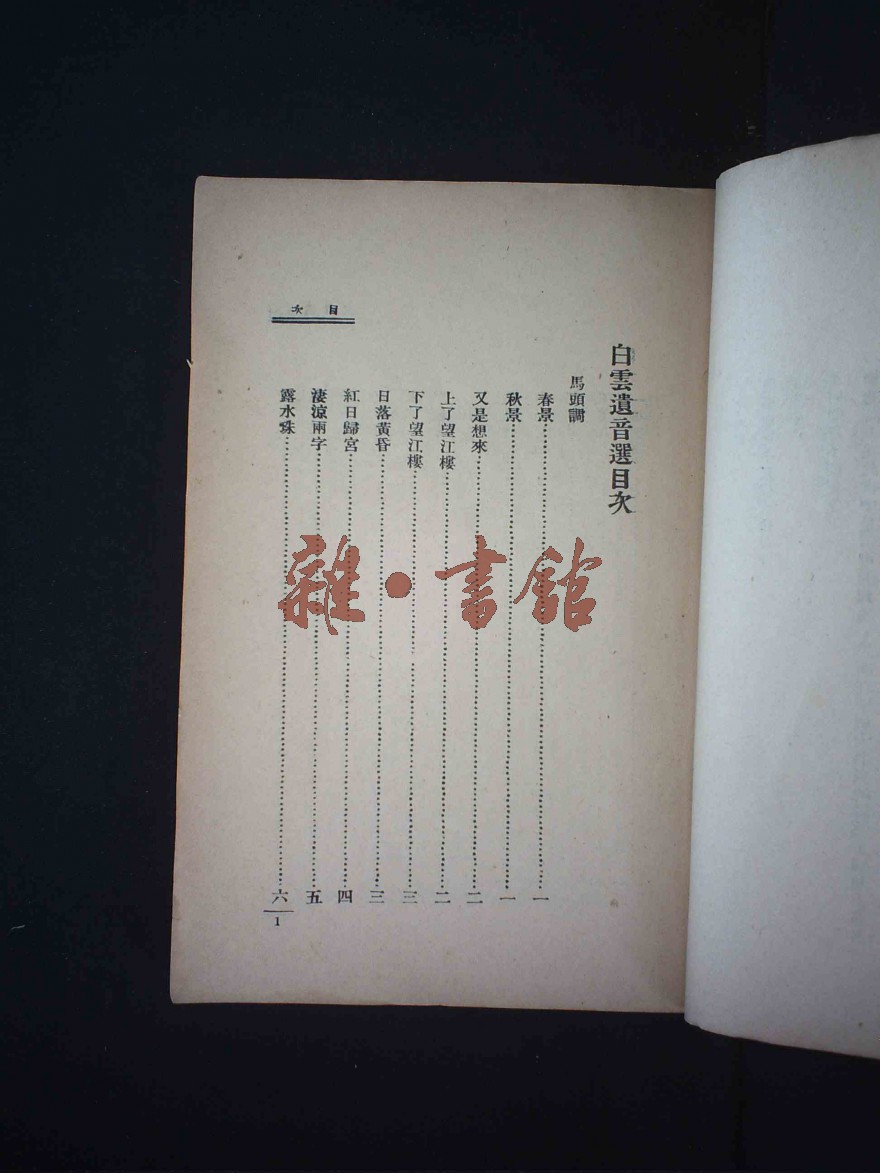 白雲遺音選目次
馬頭調
春景……一
秋景……一
又是想來……二
上了望江樓……二
下了望江樓……三
日落黃昏……三
紅日歸宮……四
淒涼兩字……五
露水珠……六
次目
1
雜·書館